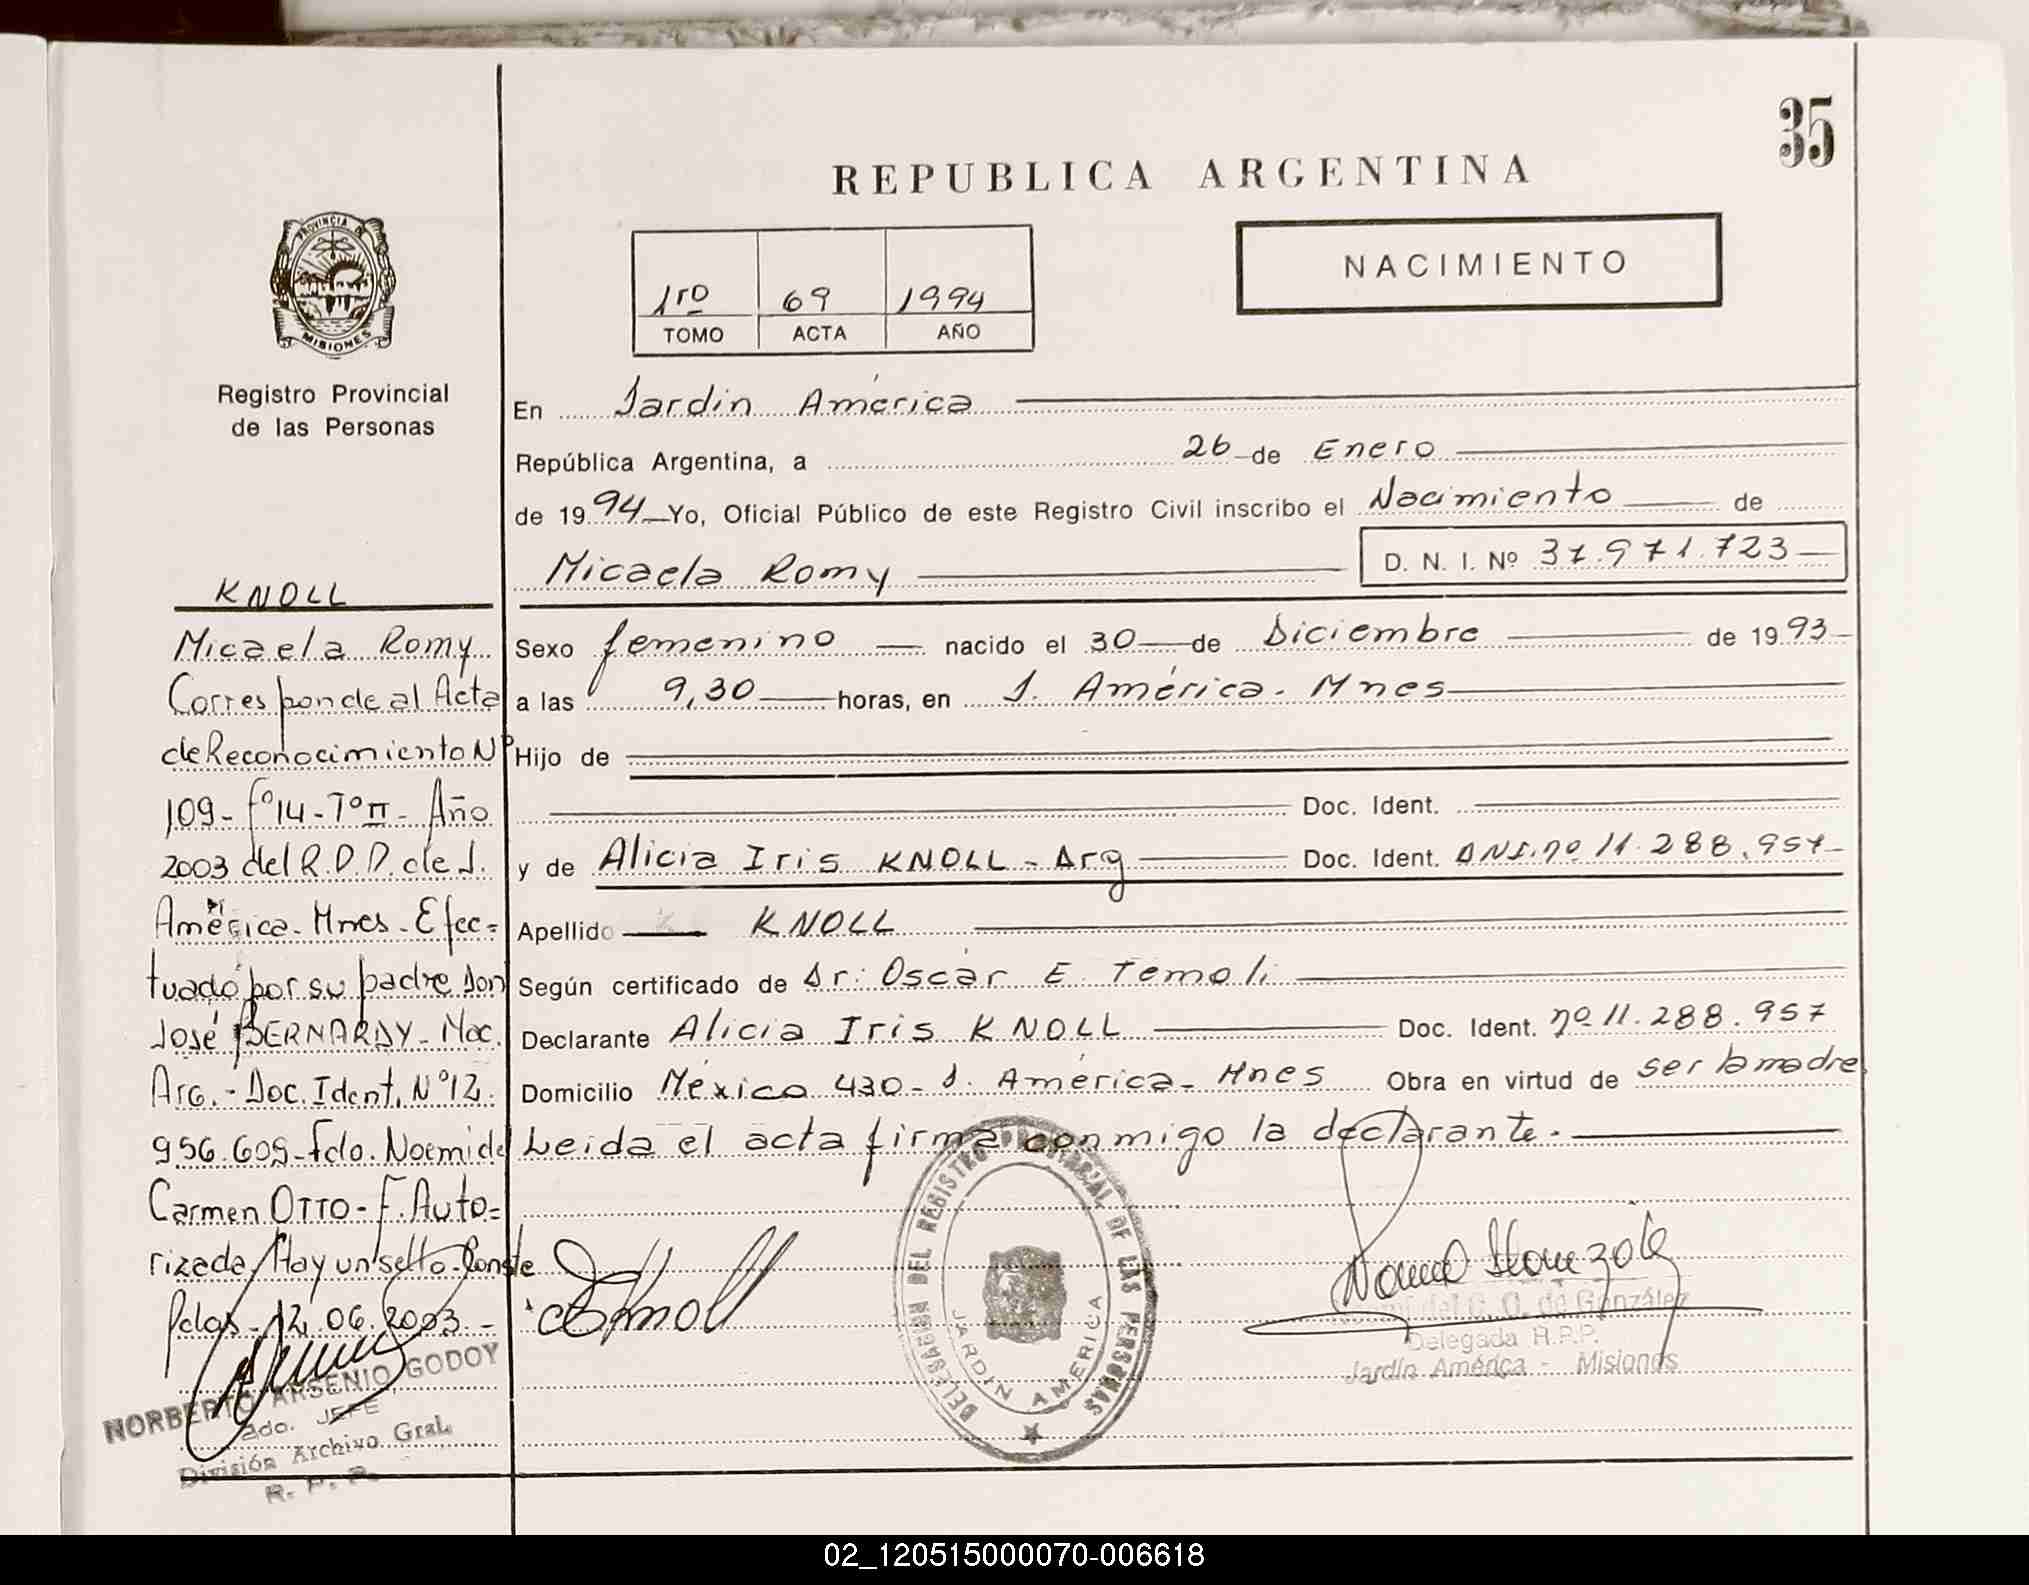 35
REPUBLICA ARGENTINA
PROVINCIA DE
MISIONES
1ro 69 1994
TOMO ACTA AÑO
NACIMIENTO
Registro Provincial
de las Personas
En Jardín América
República Argentina, a 26 de Enero
de 1994 Yo, Oficial Público de este Registro Civil inscribo el Nacimiento de
Micaela Romy D. N. I. Nº 37.971.723
Sexo femenino nacido el 30 de Diciembre de 1993
a las 9,30 horas, en J. América. Mnes
Hijo de
Doc. Ident.
y de Alicia Iris KNOLL - Arg Doc. Ident. DNI. nº 11.288.957
Apellido KNOLL
Según certificado de Dr: Oscar E. Temoli
Declarante Alicia Iris KNOLL Doc. Ident. nº 11.288.957
Domicilio México 430 - J. América - Mnes Obra en virtud de ser la madre.
Leida el acta firma conmigo la declarante.
KNOLL
Micaela Romy
Corresponde al Acta
de Reconocimiento Nº
109 - fº 14 - Tº II - Año
2003 del R.D.D. de J.
América - Mnes - Efec=
tuado por su padre Don
José BERNARDY - Nac.
Arg. - Doc. Ident. Nº 12.
956.609 - fdo. Noemi del
Carmen OTTO - F. Auto=
rizada / Hay un sello - Conste
Pdas - 12.06.2003. -
NORBERTO ARSENIO GODOY
ado. JEFE
División Archivo Gral.
R. P. P.
Knoll
DELEGACION DEL REGISTRO PROVINCIAL DE LAS PERSONAS
JARDIN AMERICA
Noemi del C. O. de González
Delegada R.P.P.
Jardín América - Misiones
02_120515000070-006618